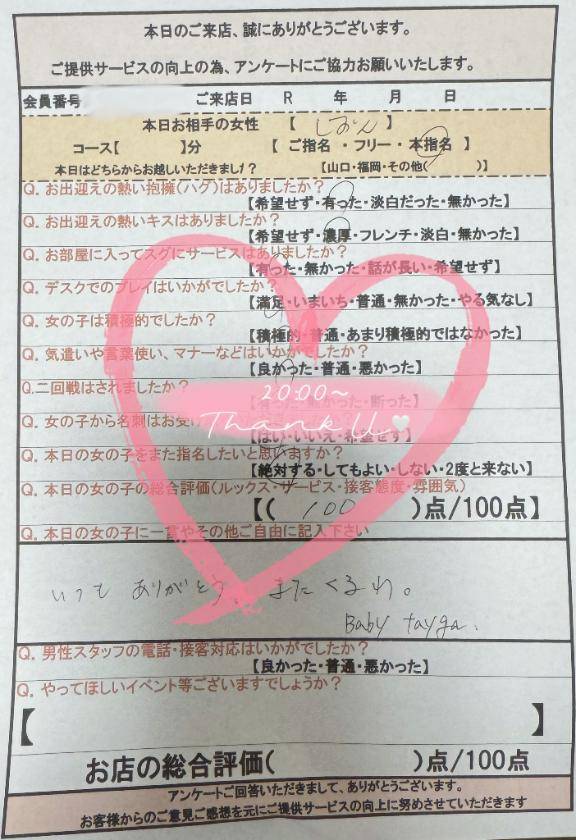 本日のご来店、誠にありがとうございます。
ご提供サービスの向上の為、アンケートにご協力お願いいたします。
会員番号 ご来店日 R 年 月 日
本日お相手の女性 【 しおん 】
コース【 】分 【 ご指名 ・フリー・本指名 】
本日はどちらからお越しいただきました? 【山口・福岡・その他( )】
Q. お出迎えの熱い抱擁(ハグ)はありましたか?
【希望せず・有った・淡白だった・無かった】
Q. お出迎えの熱いキスはありましたか?
【希望せず・濃厚・フレンチ・淡白・無かった】
Q. お部屋に入ってスグにサービスはありましたか?
【有った・無かった・話が長い・希望せず】
Q. デスクでのプレイはいかがでしたか?
【満足・いまいち・普通・無かった・やる気なし】
Q. 女の子は積極的でしたか?
【積極的・普通・あまり積極的ではなかった】
Q. 気遣いや言葉使い、マナーなどはいかがでしたか?
【良かった・普通・悪かった】
Q.二回戦はされましたか?
20:00~
【有った・無かった・断った】
Thank U
Q. 女の子から名刺はお受け
【はい・いいえ・希望せず】
Q. 本日の女の子をまた指名したいと思いますか?
【絶対する・してもよい・しない・2度と来ない】
Q. 本日の女の子の総合評価(ルックス・サービス・接客態度・雰囲気)
【( 100 )点/100点】
Q. 本日の女の子に一言やその他ご自由に記入下さい
いつも ありがとう、またくるわ。
Baby tayga.
Q. 男性スタッフの電話・接客対応はいかがでしたか?
【良かった・普通・悪かった】
Q. やってほしいイベント等ございますでしょうか?
【 】
お店の総合評価( )点/100点
アンケートご回答いただきまして、ありがとうございます。
お客様からのご意見ご感想を元にご提供サービスの向上に努めさせていただきます